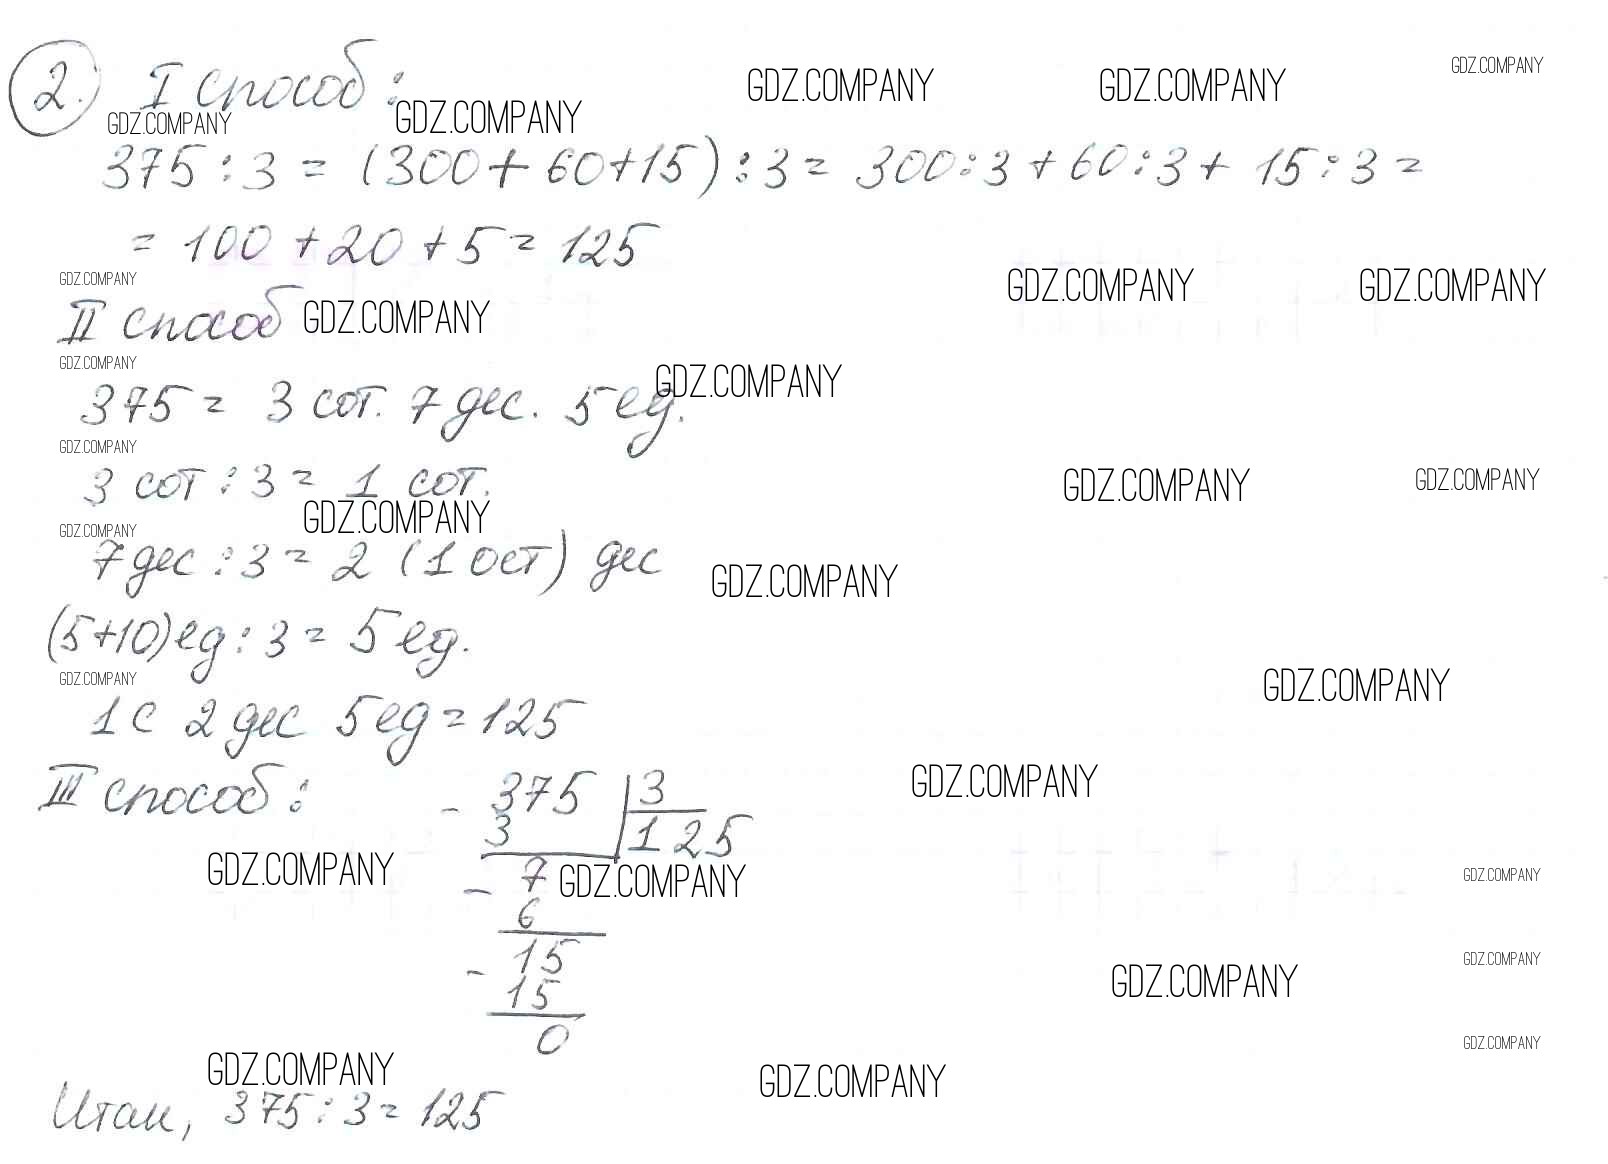 2. I способ:
GDZ.COMPANY GDZ.COMPANY GDZ.COMPANY
GDZ.COMPANY GDZ.COMPANY
375 : 3 = (300 + 60 + 15) : 3 = 300 : 3 + 60 : 3 + 15 : 3 =
= 100 + 20 + 5 = 125
GDZ.COMPANY GDZ.COMPANY GDZ.COMPANY
II способ GDZ.COMPANY
GDZ.COMPANY GDZ.COMPANY
375 = 3 сот. 7 дес. 5 ед.
GDZ.COMPANY
3 сот : 3 = 1 сот.
GDZ.COMPANY GDZ.COMPANY
GDZ.COMPANY GDZ.COMPANY
7 дес : 3 = 2 (1 ост) дес
GDZ.COMPANY
(5+10) ед : 3 = 5 ед.
GDZ.COMPANY GDZ.COMPANY
1 с 2 дес 5 ед = 125
III способ: - 375 | 3
GDZ.COMPANY
3 125
GDZ.COMPANY GDZ.COMPANY GDZ.COMPANY
- 7
6
- 15
GDZ.COMPANY GDZ.COMPANY
15
0
GDZ.COMPANY
GDZ.COMPANY GDZ.COMPANY
Итак, 375 : 3 = 125